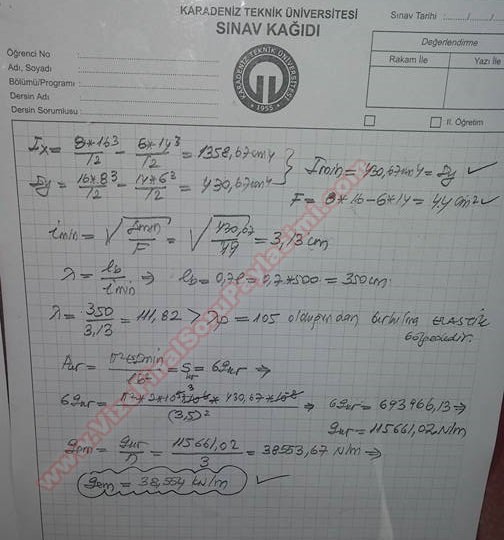 KARADENİZ TEKNİK ÜNİVERSİTESİ
SINAV KAĞIDI
Sınav Tarihi : ....../....../......
Öğrenci No :
Adı, Soyadı :
Bölümü/Programı :
Dersin Adı :
Dersin Sorumlusu :
KARADENİZ TEKNİK ÜNİVERSİTESİ
1955
Değerlendirme
Rakam İle
Yazı İle
II. Öğretim
Ix = 8*16³/12 - 6*14³/12 = 1358,67cm4
Iy = 16*8³/12 - 14*6³/12 = 430,67cm4
Imin = 430,67cm4 = Iy ✓
F = 8*16-6*14 = 44cm² ✓
imin = √(Imin/F) = √(430,67/44) = 3,13 cm
λ = lb/imin ⇒ lb = 0,7l = 0,7*500 = 350cm
λ = 350/3,13 = 111,82 > λp = 105 olduğundan burkulma ELASTİK bölgededir.
Pkr = π²EImin/lb² = 6qkr ⇒
6qkr = π²*2*10⁵*10⁶*430,67*10⁻⁸/(3,5)² ⇒ 6qkr = 693966,13 ⇒
qkr = 115661,02 N/m
qem = qkr/n = 115661,02/3 = 38553,67 N/m ⇒
qem = 38,554 kN/m ✓
www.VizeFinalSoruPaylasimi.com